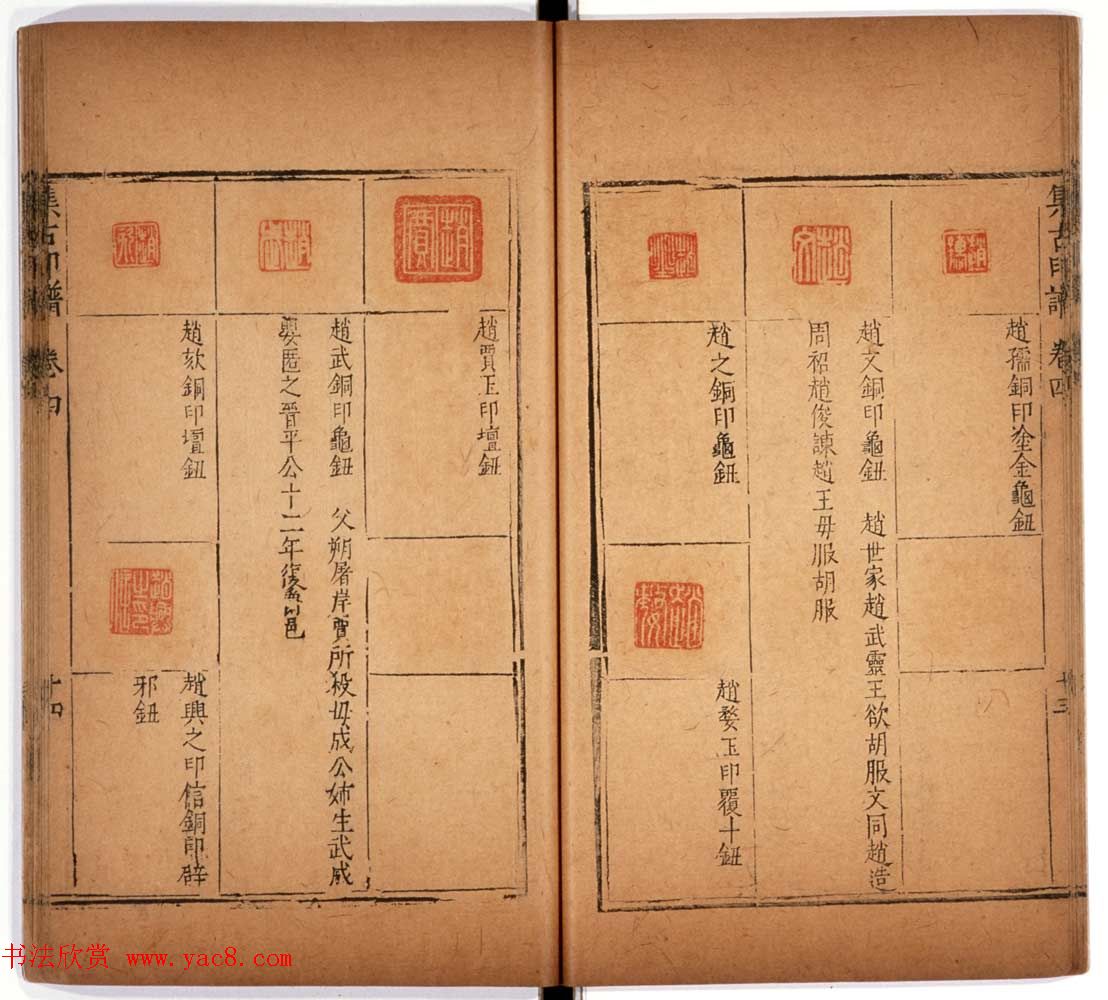 集古印譜 卷四
十三
趙孺銅印塗金龜鈕
趙文銅印龜鈕 趙世家趙武靈王欲胡服文同趙造
周袑趙俊諫趙王毋服胡服
趙之銅印龜鈕
趙婺玉印覆斗鈕
趙賈玉印壇鈕
趙武銅印龜鈕 父朔屠岸賈所殺毋成公姊生武成
嬰匿之晉平公十二年復
邑
趙欬銅印壇鈕
趙興之印信銅印辟
邪鈕
集古印譜 卷四
十四
书法欣赏 www.yac8.com